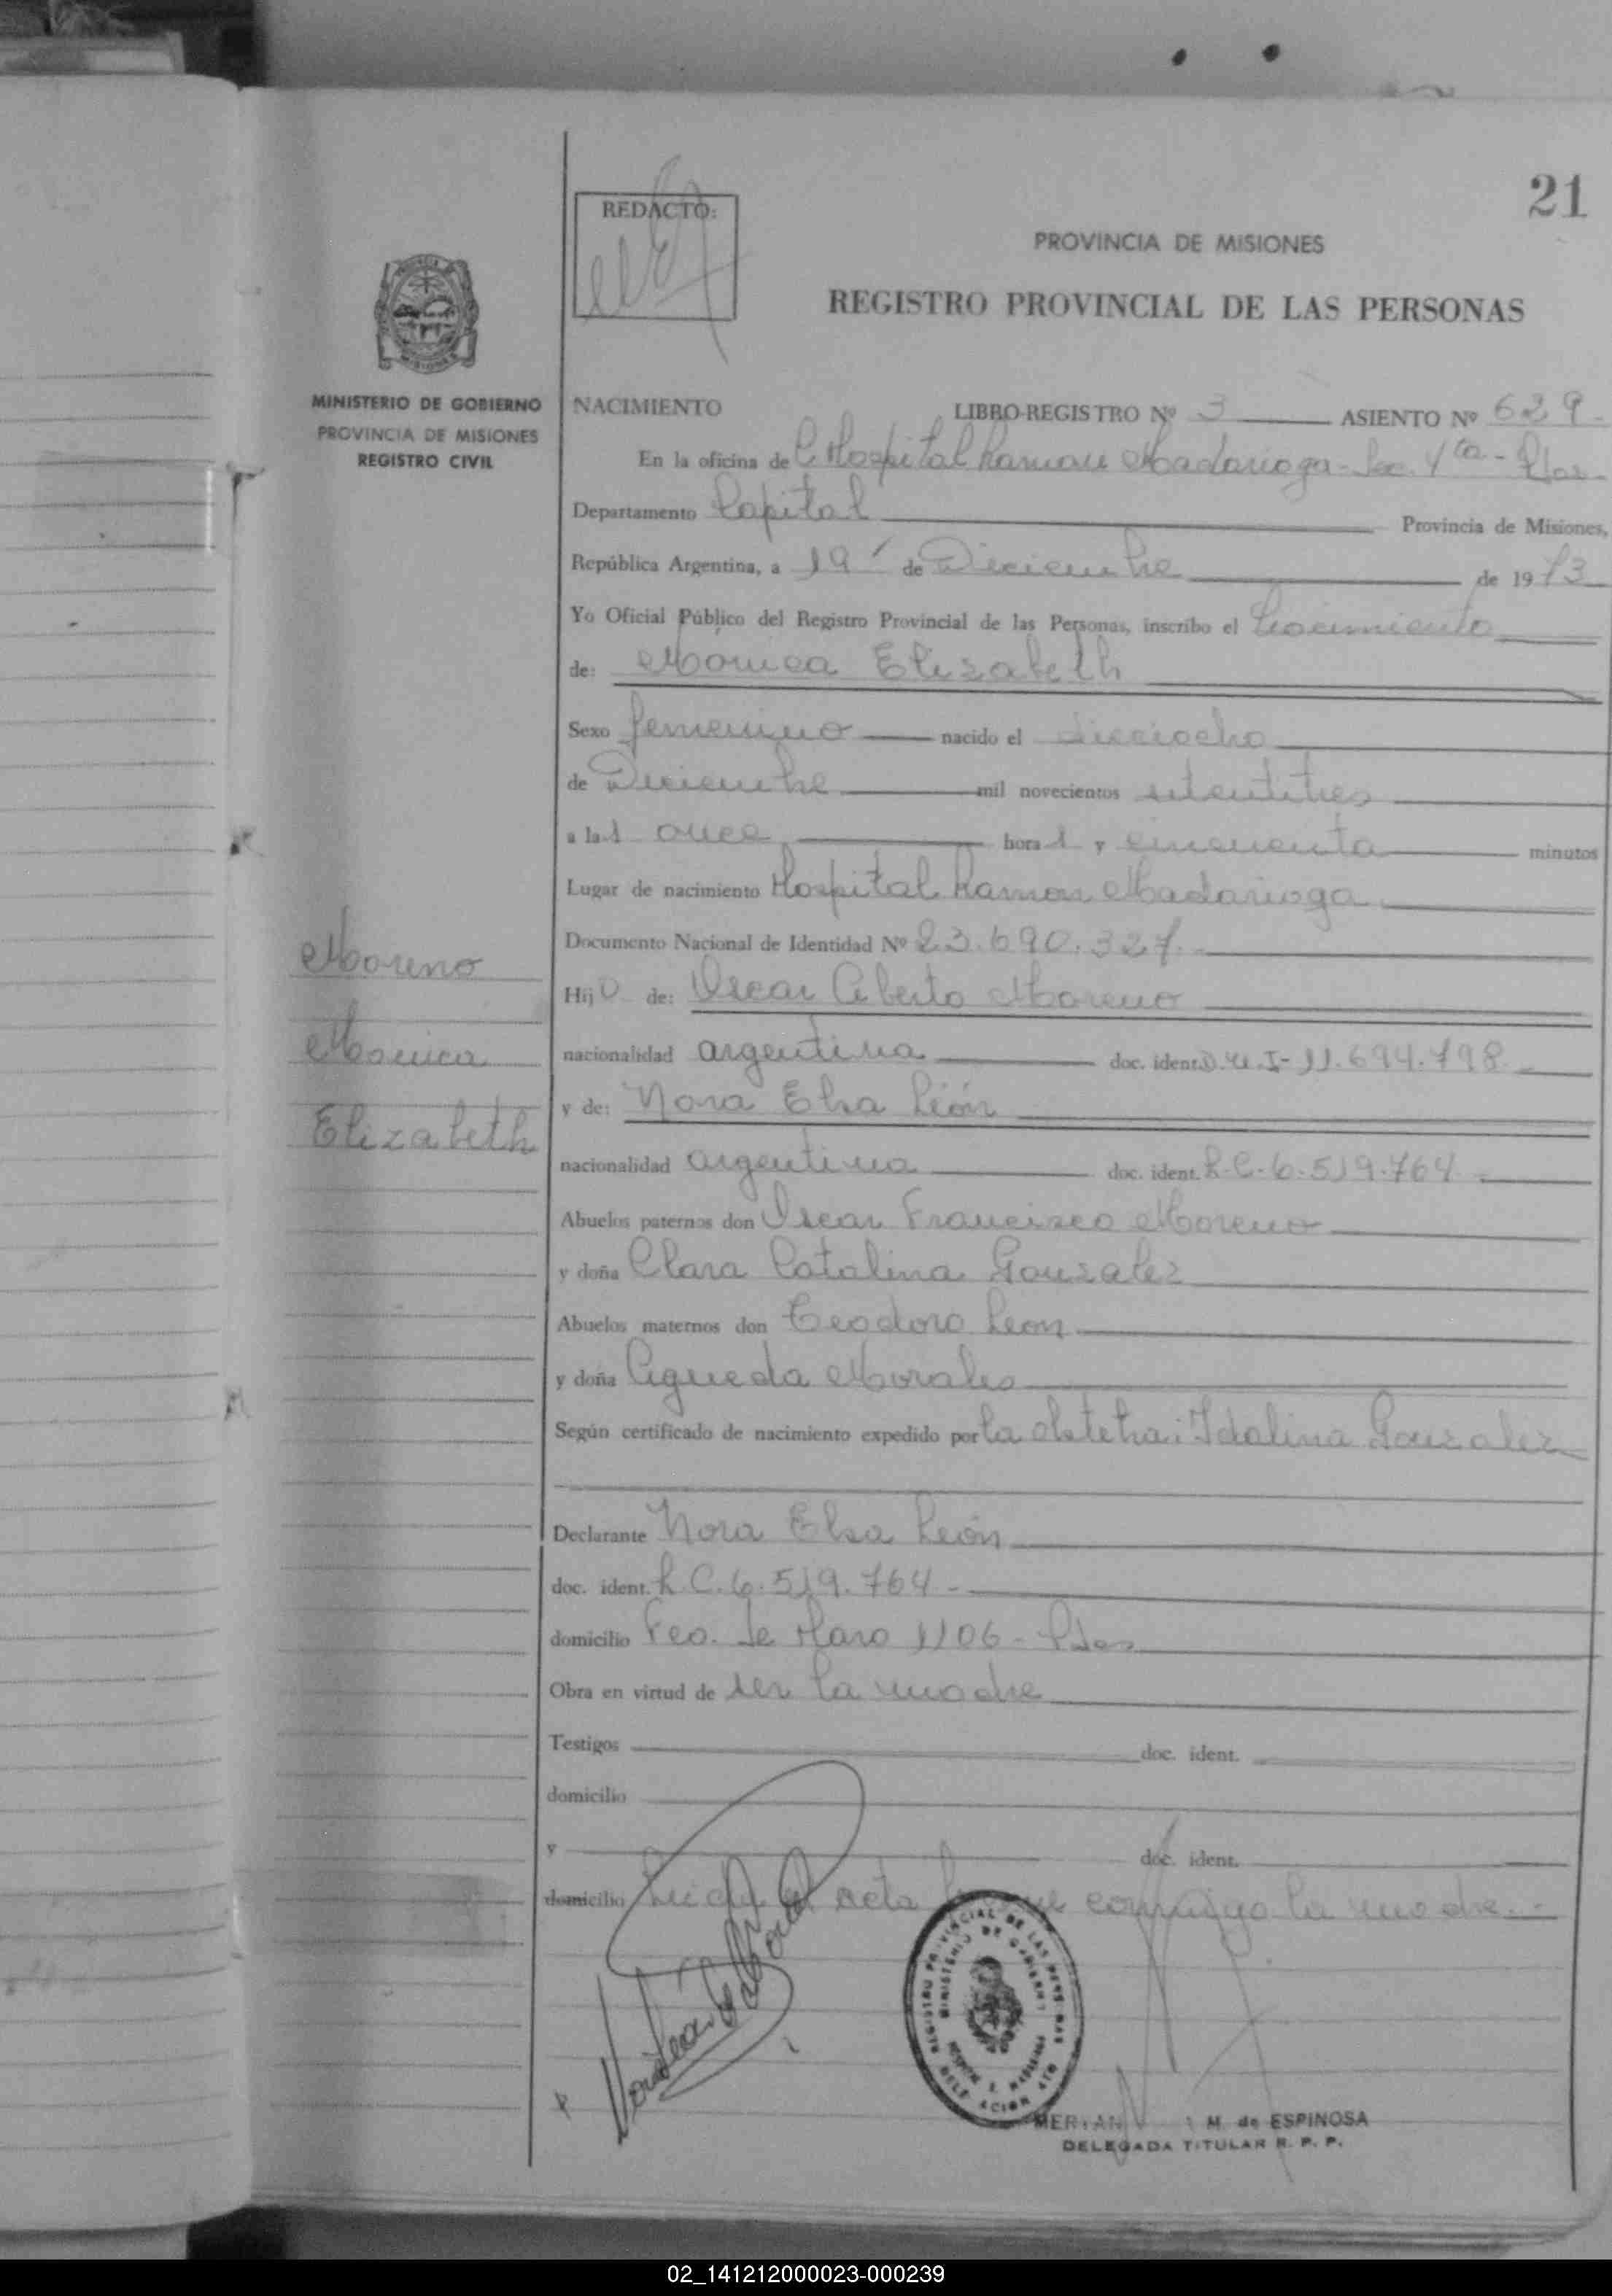 21
REDACTO:
PROVINCIA DE MISIONES
REGISTRO PROVINCIAL DE LAS PERSONAS
MINISTERIO DE GOBIERNO
PROVINCIA DE MISIONES
REGISTRO CIVIL
NACIMIENTO LIBRO-REGISTRO Nº 3 ASIENTO Nº 629
En la oficina de Hospital Ramon Madariaga - Sec. 4ta - Pdas
Departamento Capital Provincia de Misiones,
República Argentina, a 19 de Diciembre de 1973
Yo Oficial Público del Registro Provincial de las Personas, inscribo el nacimiento
de: Monica Elizabeth
Sexo femenino nacido el dieciocho
de Diciembre mil novecientos setentitres
a las once horas y cincuenta minutos
Lugar de nacimiento Hospital Ramon Madariaga
Documento Nacional de Identidad Nº 23.690.327
Moreno
Monica
Elizabeth
Hij de: Oscar Alberto Moreno
nacionalidad argentina doc. ident. D.N.I-11.694.798
y de: Nora Elsa León
nacionalidad argentina doc. ident. L.C. 6.519.764
Abuelos paternos don Oscar Francisco Moreno
y doña Clara Catalina Gonzalez
Abuelos maternos don Teodoro Leon
y doña Agueda Morales
Según certificado de nacimiento expedido por la obstetra: Idalina Gonzalez
Declarante Nora Elsa León
doc. ident. L.C. 6.519.764 -
domicilio Fco. de Haro 1106 - Pdas
Obra en virtud de ser la madre
Testigos doc. ident.
domicilio
y doc. ident.
domicilio Leida el acta firma conmigo la madre.-
REGISTRO PROVINCIAL DE LAS PERSONAS
MINISTERIO DE GOBIERNO
HOSPITAL R. MADARIAGA
DELEGACION 4TA
M. de ESPINOSA
DELEGADA TITULAR R. P. P.
02_141212000023-000239